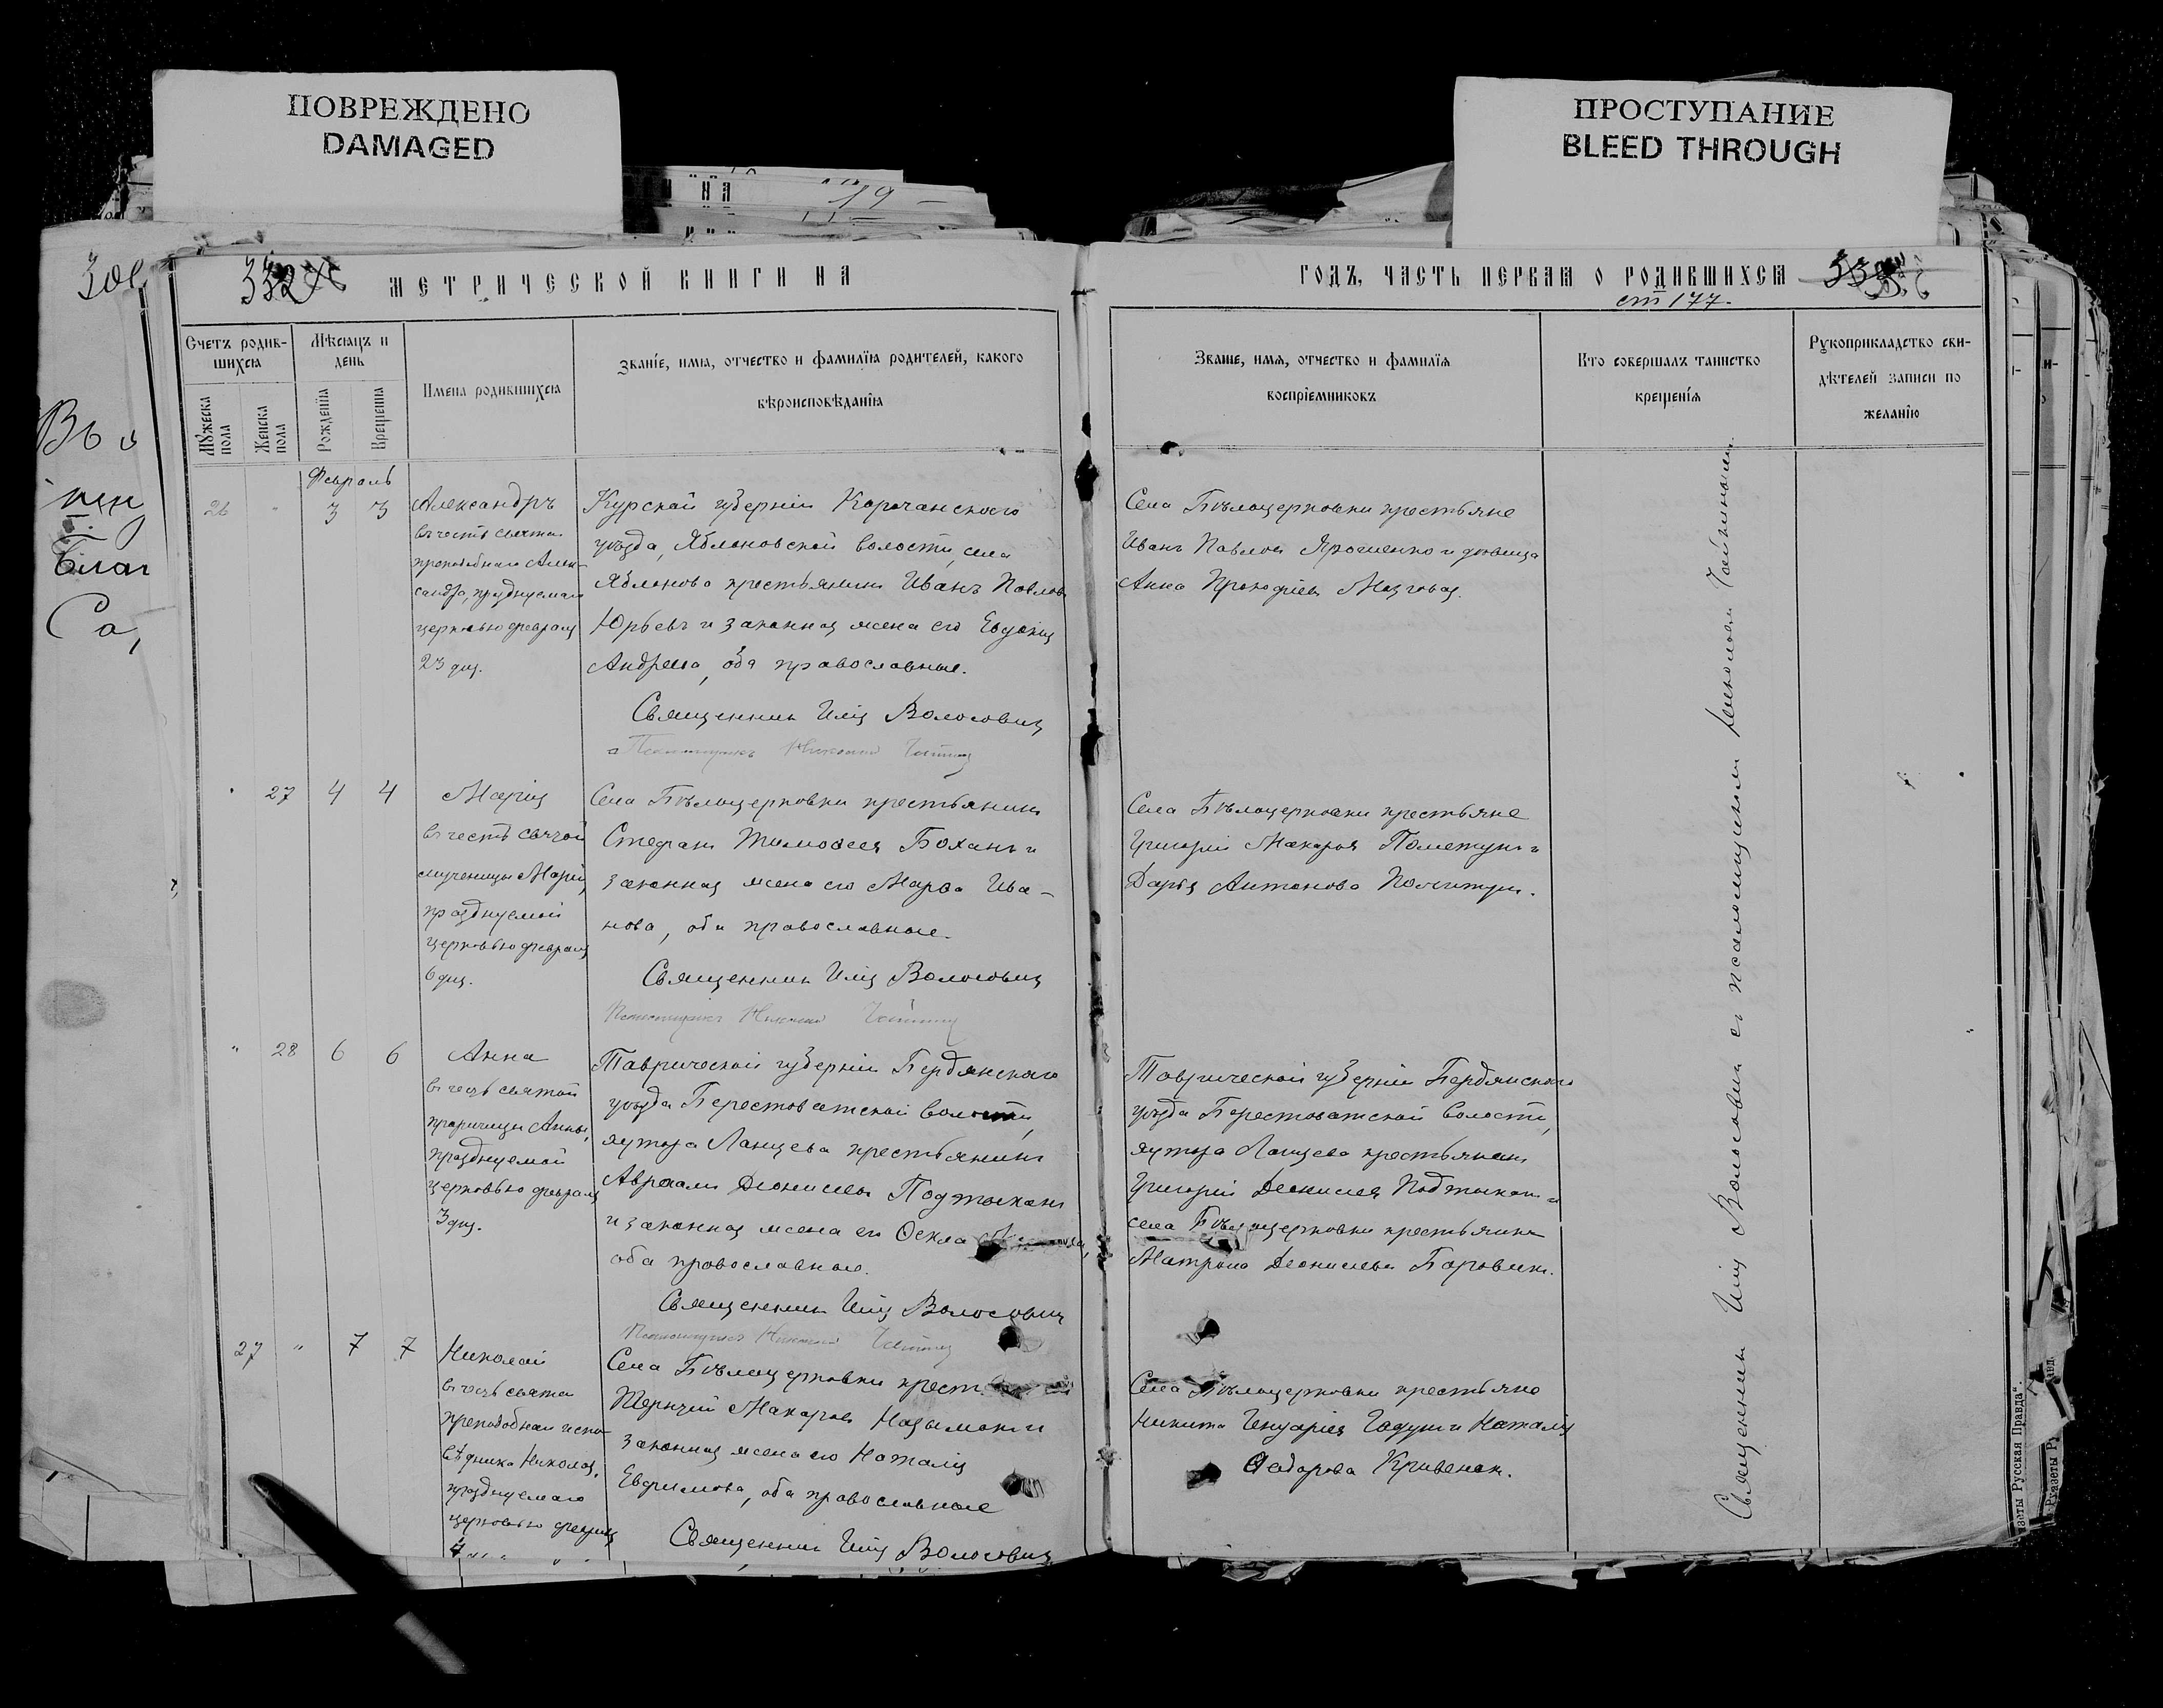 ПОВРЕЖДЕНО
DAMAGED
ПРОСТУПАНИЕ
BLEED THROUGH
332
МЕТРИЧЕСКОЙ КНИГИ НА
ГОДЪ, ЧАСТЬ ПЕРВАЯ О РОДИВШИХСЯ
ст 177.
Счетъ родив-
шихся
Мѣсяцъ и
день
Мужеска пола
Женска пола
Рожденія
Крещенія
Имена родившихся
Званіе, имя, отчество и фамилія родителей, какого
вѣроисповѣданія
Званіе, имя, отчество и фамилія
воспріемниковъ
Кто совершалъ таинство
крещенія
Рукоприкладство сви-
дѣтелей записи по
желанію
Февраль
26 " 3 3
Александръ
въ честь святаго
преподобнаго Алек-
сандра, празднуемаго
церковью февраля
23 дня.
Курской губерніи Корочанскаго
уѣзда, Яблоновской волости, села
Яблоново крестьянинъ Иванъ Павловъ
Юрьевъ и законная жена его Евдокія
Андреева, оба православные.
Священникъ Илія Волосовичъ
Псаломщикъ Николай
Села Бѣлоцерковки крестьяне
Иванъ Павловъ Ярошенко и дѣвица
Анна Прокофіева
" 27 4 4
Марія
въ честь святой
мученицы Маріи,
празднуемой
церковью февраля
6 дня.
Села Бѣлоцерковки крестьянинъ
Стефанъ Тимофеевъ Боханъ и
законная жена его Марфа Ива-
нова, оба православные.
Священникъ Илія Волосовичъ
Псаломщикъ Николай
Села Бѣлоцерковки крестьяне
Григорій Макаровъ Пометунъ и
Дарья Антонова
" 28 6 6
Анна
въ честь святой
пророчицы Анны,
празднуемой
церковью февраля
3 дня.
Таврической губерніи Бердянскаго
уѣзда Берестоватской волости,
хутора Ланцева крестьянинъ
Авраамъ Діонисіевъ Подтыканъ
и законная жена его Ѳекла
оба православные.
Священникъ Илія Волосовичъ
Псаломщикъ Николай
Таврической губерніи Бердянскаго
уѣзда Берестоватской волости,
хутора Ланцева крестьянинъ
Григорій Діонисіевъ Подтыканъ и
села Бѣлоцерковки крестьянка
Матрона Діонисіева Боровикъ.
27 " 7 7
Николай
въ честь святаго
преподобнаго испо-
вѣдника Николая,
празднуемаго
церковью февраля
4
Села Бѣлоцерковки крест
Терентій Макаровъ и
законная жена его Наталія
Евфимова, оба православные
Священникъ Илія Волосовичъ
Села Бѣлоцерковки крестьяне
Никита и Наталія
Ѳедорова Кривенок.
Священникъ Илія Волосовичъ съ псаломщикомъ Николаемъ